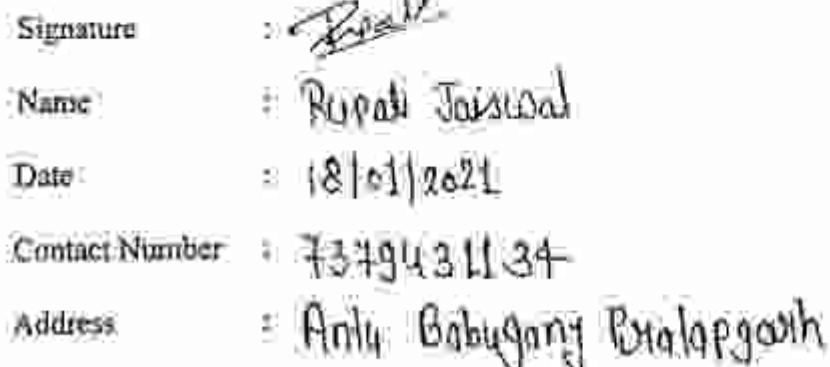 Signature :
Name : Rupali Jaiswal
Date : 18/01/2021
Contact Number : 7379431134
Address : Babuganj Pratapgarh